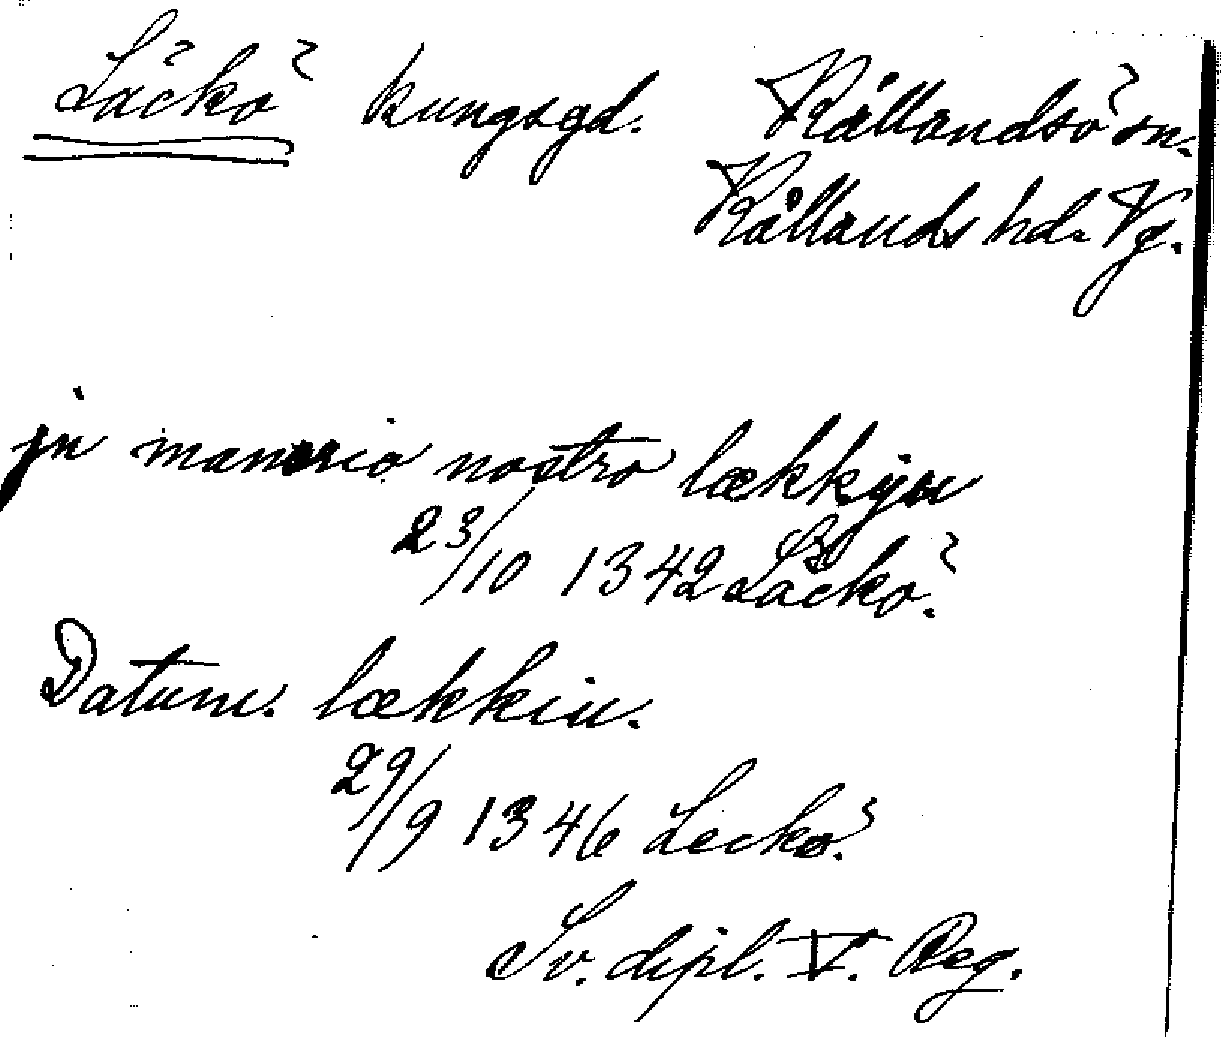 Läckö kungsgd. Kållandsö sn.
Kållands hd. Vg.
jn manerio nostro lækkyu
23/10 1342 Läckö.
Datum. lækkiu.
29/9 1346 Leckö.
Sv. dipl. V. Reg.